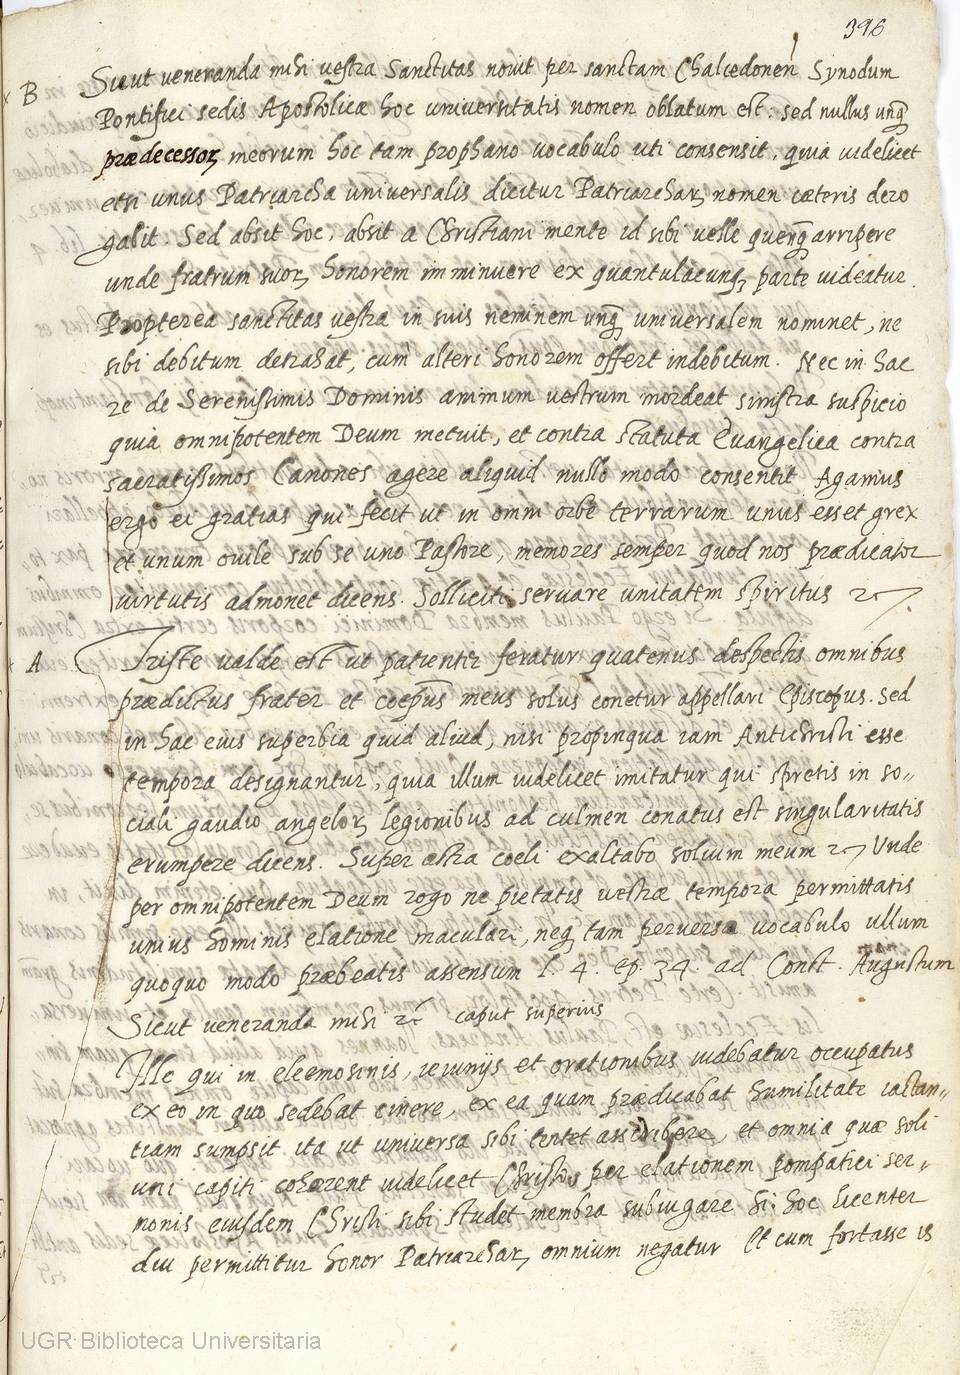 396
B Sicut veneranda mihi vestra Sanctitas novit per sanctam Chalcedonen Synodum
Pontifici sedis Apostolicæ hoc universitatis nomen oblatum est: sed nullus unq̃
prædecessoꝝ meorum hoc tam prophano vocabulo uti consensit, quia videlicet
etsi unus Patriarcha universalis dicitur Patriarchaꝝ nomen cæteris dero
gabit. Sed absit hoc, absit a Christiani mente id sibi velle quenq̃ arripere
unde fratrum suoꝝ honorem imminuere ex quantulacunqꝫ parte videatur.
Propterea sanctitas vestra in suis neminem unq̃ universalem nominet, ne
sibi debitum detrahat, cum alteri honorem offert indebitum. Nec in hac
re de Serenissimis Dominis animum vestrum mordeat sinistra suspicio
quia omnipotentem Deum metuit, et contra statuta Evangelica contra
sacratissimos Canones agere aliquid nullo modo consentit Agamus
ergo ei gratias qui fecit ut in omni orbe terrarum unus esset grex
et unum ovile sub se uno Pastore, memores semper quod nos prædicator
virtutis admonet dicens. Solliciti servare unitatem spiritus &c.
A Triste valde est ut patienter feratur quatenus despectis omnibus
prædictus frater et coep̃us meus solus conetur appellari Episcopus. Sed
in hac eius superbia quid aliud, nisi propinqua iam Antichristi esse
tempora designantur, quia illum videlicet imitatur qui spretis in so„
ciali gaudio angeloꝝ legionibus ad culmen conatus est singularitatis
erumpere dicens. Super astra coeli exaltabo solium meum &c Unde
per omnipotentem Deum rogo ne pietatis vestræ tempora permittatis
unius hominis elatione maculari, neqꝫ tam perverso vocabulo ullum
quoquo modo præbeatis assensum l. 4. ep. 34. ad Const. Augustam
Sicut veneranda mihi &c caput superius
Ille qui in eleemosinis, ieiunijs et orationibus videbatur occupatus
ex eo in quo sedebat cinere, ex ea quam prædicabat humilitate iactan„
tiam sumpsit ita ut universa sibi tentet asscribere, et omnia quæ soli
uni capiti cohærent videlicet Christo, per elationem pompatici ser„
monis eiusdem Christi sibi studet membra subiugare Si hoc licenter
diu permittitur honor Patriarchaꝝ omnium negatur Et cum fortasse is
UGR Biblioteca Universitaria